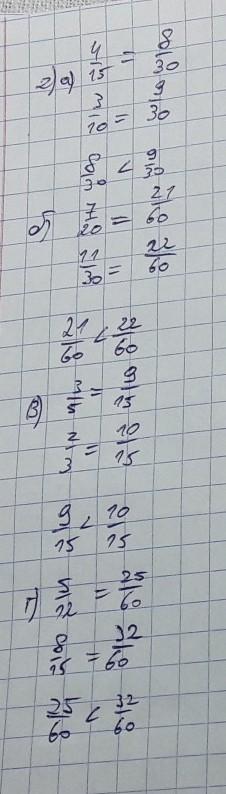 2) а) 4/15 = 8/30
3/10 = 9/30
8/30 < 9/30
б) 7/20 = 21/60
11/30 = 22/60
21/60 < 22/60
в) 3/5 = 9/15
2/3 = 10/15
9/15 < 10/15
г) 5/12 = 25/60
8/15 = 32/60
25/60 < 32/60